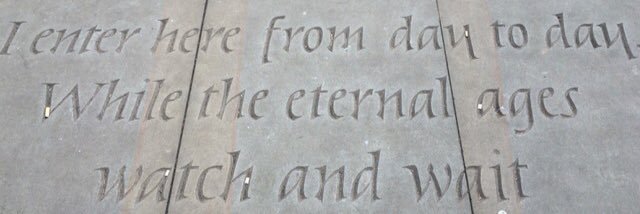 I enter here from day to day
While the eternal ages
watch and wait